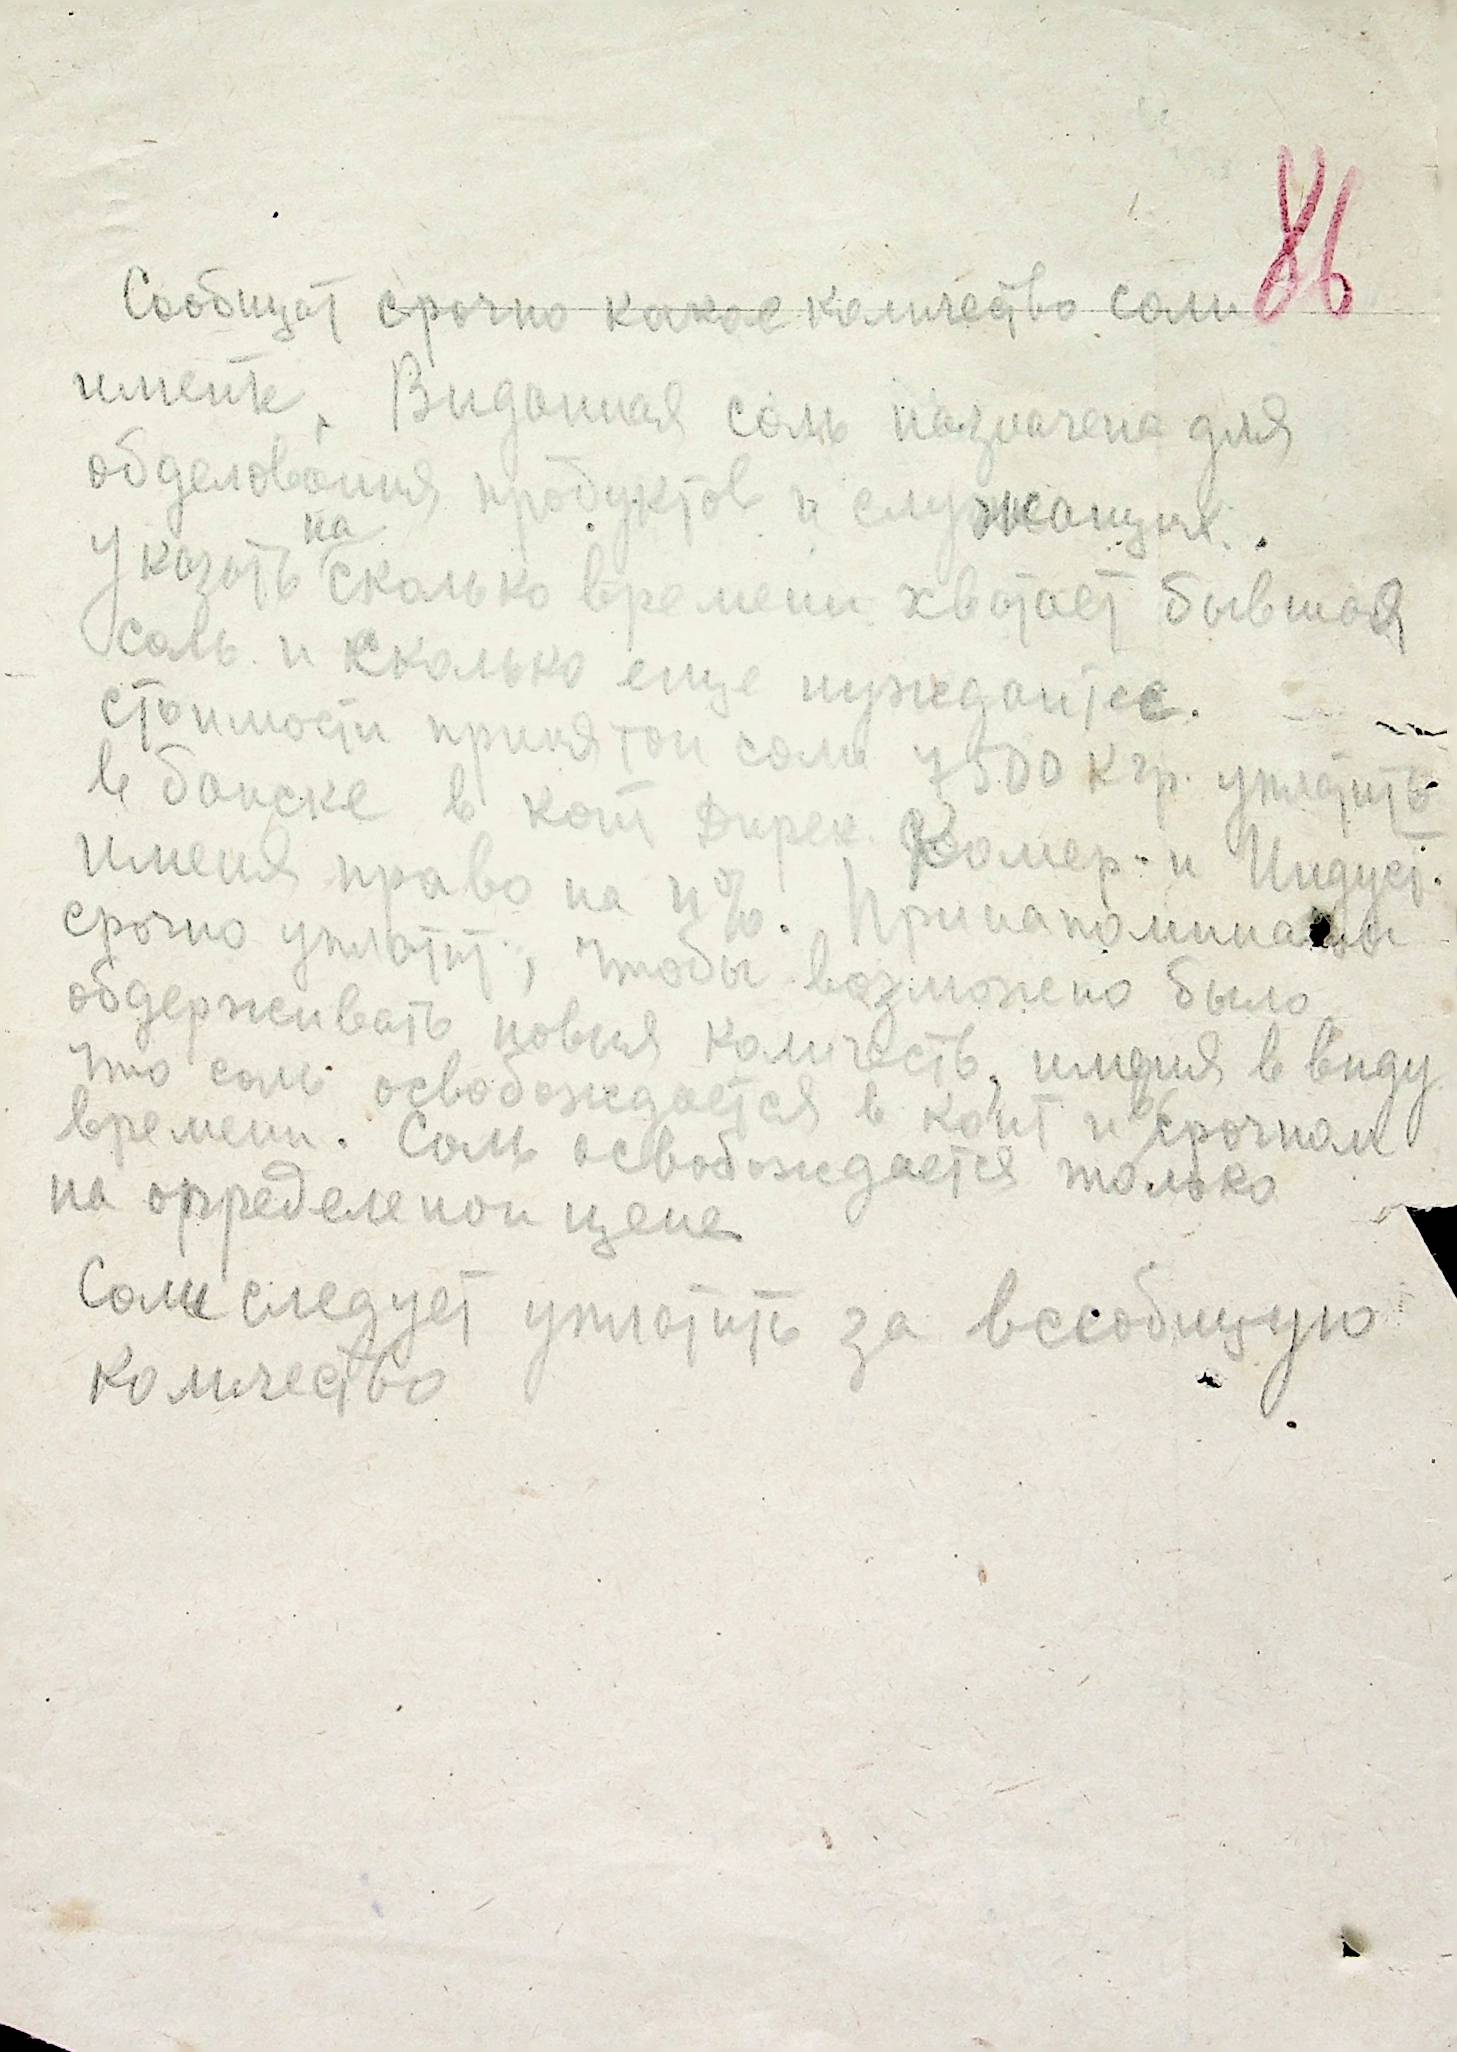 86
Сообщат срочно какое количество соли
имеите. Виданная соль назначена для
обделования продуктов и служащих.
Указать на сколько времени хватает бывшая
соль и сколько еще нуждаитес.
стоимости принятои соли 7500 кгр. уплатить
в банске в конт Дирек. Комер. и Индуст.
имеия право на 4%. Принапоминаы
срочно уплатит, чтобы возможено было
обдерживать новия количеств, имдия в виду
что соль освобождается в конт и срочном
времени. Соль освобождается только
на определенои цене
Соли следует уплатить за всеобщую
количество